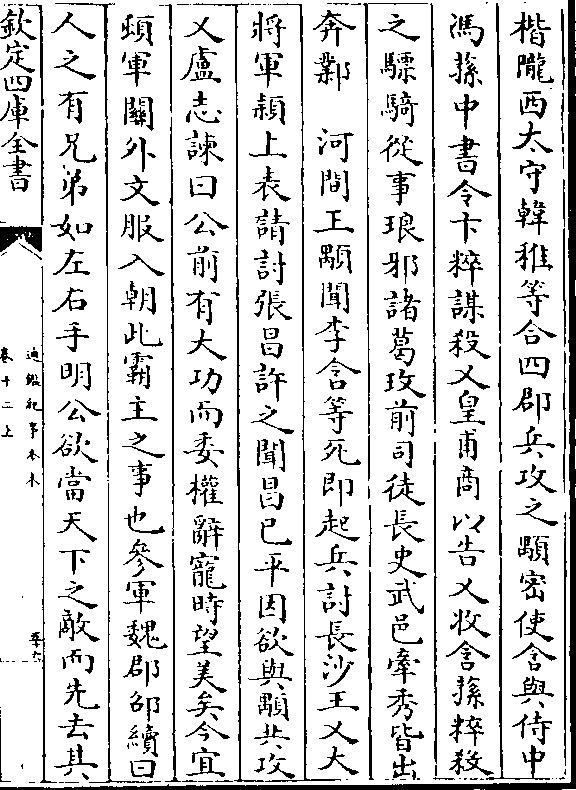 楷隴西太守韓稚等合四郡兵攻之顒密使含與侍中
馮蓀中書令卞粹謀殺乂皇甫商以告乂收含蓀粹殺
之驃騎從事琅邪諸葛玫前司徒長史武邑牽秀皆出
奔鄴　河間王顒聞李含等死即起兵討長沙王乂大
將軍穎上表請討張昌許之聞昌已平因欲與顒共攻
乂盧志諫曰公前有大功而委權辭寵時望美矣今宜
頓軍關外文服入朝此霸主之事也參軍魏郡邵續曰
人之有兄弟如左右手明公欲當天下之敵而先去其
欽定四庫全書
通鑑紀事本末
卷十二上